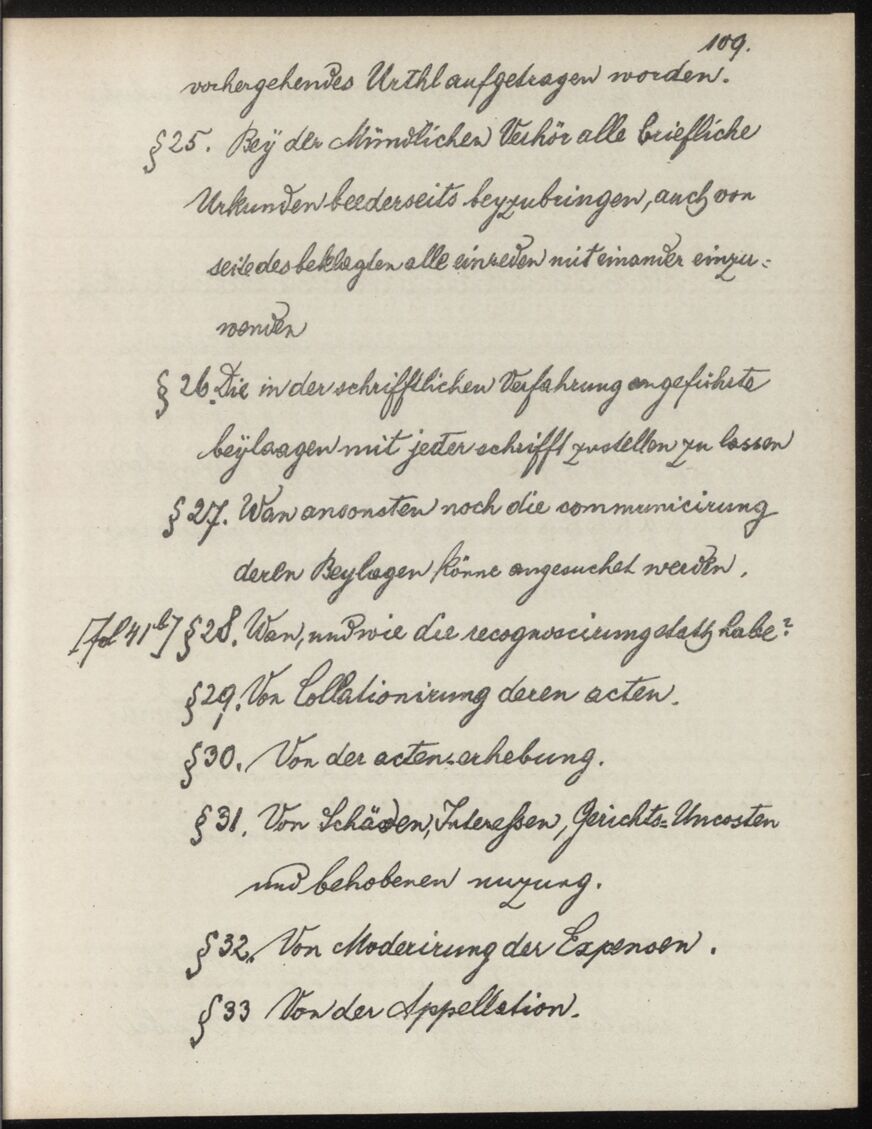 109.
vorhergehendes Urthl aufgetragen worden.
§ 25. Beÿ der Mündlichen Verhör alle briefliche
Urkunden beederseits beyzubringen, auch von
seite des beklagten alle einreden mit einander einzu=
wenden
§ 26. Die in der schrifftlichen Verfahrung angeführte
beÿlaagen mit jeder schrifft zustellen zu lassen
§ 27. Wan ansonsten noch die communicirung
deren Beylagen könne angesuchet werden.
[fol 41b] § 28. Wan, und wie die recognoscirung statt habe?
§ 29. Von Collationirung deren acten.
§ 30. Von der acten-erhebung.
§ 31. Von Schäden, Interessen, Gerichts=Uncosten
und behobenen nuzung.
§ 32. Von Moderirung der Expensen.
§ 33 Von der Appellation.